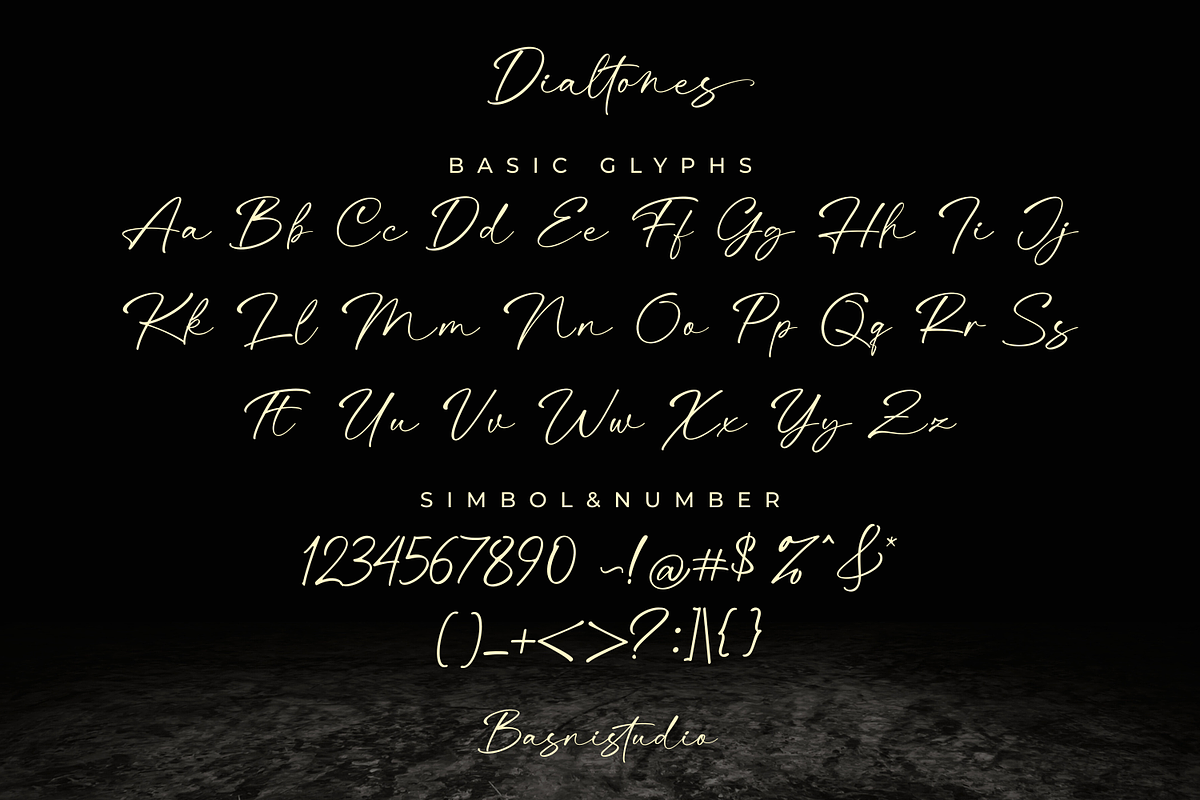 Dialtones
BASIC GLYPHS
Aa Bb Cc Dd Ee Ff Gg Hh Ii Jj
Kk Ll Mm Nn Oo Pp Qq Rr Ss
Tt Uu Vv Ww Xx Yy Zz
SIMBOL&NUMBER
1234567890 ~!@#$ %^&*
()_+<>?:]\|{ }
Basnistudio